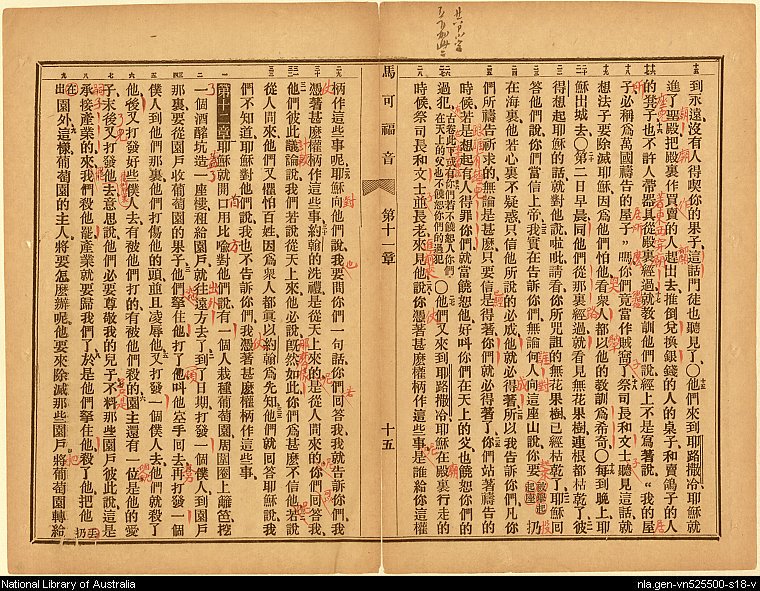 到永遠沒有人得喫你的果子、這話門徒也聽見了〇他們來到耶路撒冷、耶穌就
進了聖殿把殿裏作買賣的人趕出去、推倒兌換銀錢的人的桌子、和賣鴿子的人
的凳子、也不許人帶器具從殿裏經過、就教訓他們說、經上不是寫著說、“我的屋
子必稱爲萬國禱告的屋子”嗎、你們竟當作賊窩了、祭司長和文士聽見這話、就
想法子要除滅耶穌、因爲他們怕他、看衆人都以他的教訓爲希奇、〇每到晚上耶
穌出城去〇第二日早晨、同他們從那裏經過、就看見無花果樹連根都枯乾了、彼
得想起耶穌的話就對他說、啦吡請看你所咒詛的無花果樹已經枯乾了、耶穌回
答他們說、你們當信上帝、我實在告訴你們、無論何人向這座山說、你要被舉起 起座 扔
在海裏、他若心裏不疑惑、只信他所說的必成、他就必得著、所以我告訴你們凡你
們所禱告祈求的、無論是甚麽、只要信是得著、你們就必得著了、你們站著禱告的
時候若是想起有人得罪你們、就當饒恕他、好呌你們在天上的父、也饒恕你們的
過犯、古卷此下或有你們若不饒恕人你們在天上的父也不饒恕你們的過犯〇他們又來到耶路撒冷、耶穌在殿裏行走的
時候、祭司長和文士並長老來見他、說你憑著甚麽權柄作這些事、是誰給你這權
馬可福音 第十一章 十五
柄作這些事呢、耶穌向他們說、我要問你們一句話、你們回答我、我就告訴你們、我
憑著甚麽權柄作這些事、約翰的洗禮是從天上來的、是從人間來的、你們回答我、
他們彼此議論說、我們若說從天上來、他必說、旣然如此、你們爲甚麽不信他、若說
從人間來、他們又懼怕百姓、因爲衆人都眞以約翰爲先知、他們就回答耶穌說、我
們不知道、耶穌對他們說、我也不告訴你們、我憑著甚麽權柄作這些事、
第十二章 耶穌就開口用比喩對他們說、有一個人栽種葡萄園、周圍圈上籬笆、挖
一個酒醡坑、造一座樓、租給園戶、就往遠方去了、到了日期、打發一個僕人到園戶
那裏、要從園戶收葡萄園的果子、他們拏住他、打了他、呌他空手回去、再打發一個
僕人到他們那裏、他們打傷他的頭、並且凌辱他、又打發一個僕人去、他們就殺了
他、後又打發好些僕人去、有被他們打的、有被他們殺的、園主還有一位是他的愛
子、末後又打發他去、意思說、他們必要尊敬我的兒子、不料那些園戶彼此說、這是
承接產業的、來我們殺他罷、產業就要歸我們了、於是他們拏住他、殺了他、把他扔
在園外、這樣、葡萄園的主人將要怎麽辦呢、他要來除滅那些園戶、將葡萄園轉給
National Library of Australia
nla.gen-vn525500-s18-v